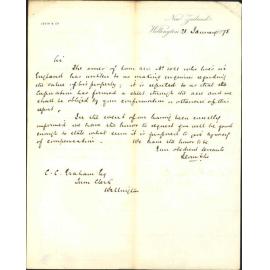 LEVIN & Co
New Zealand
Wellington 21 January 1878
Sir
The owner of Town acre No 1051 who lives in
England has written to us making enquiries regarding
the value of his property; it is reported to us that the
Corporation has formed a street through the acre and we
shall be obliged by your confirmation or otherwise of this
report.
In the event of our having been correctly
informed we have the honor to request you will be good
enough to state what sum it is proposed to pay by way
of compensation. We have the honor to be
Your obedient servants
Levin & Co
C. C. Graham Esq
Town Clerk
Wellington